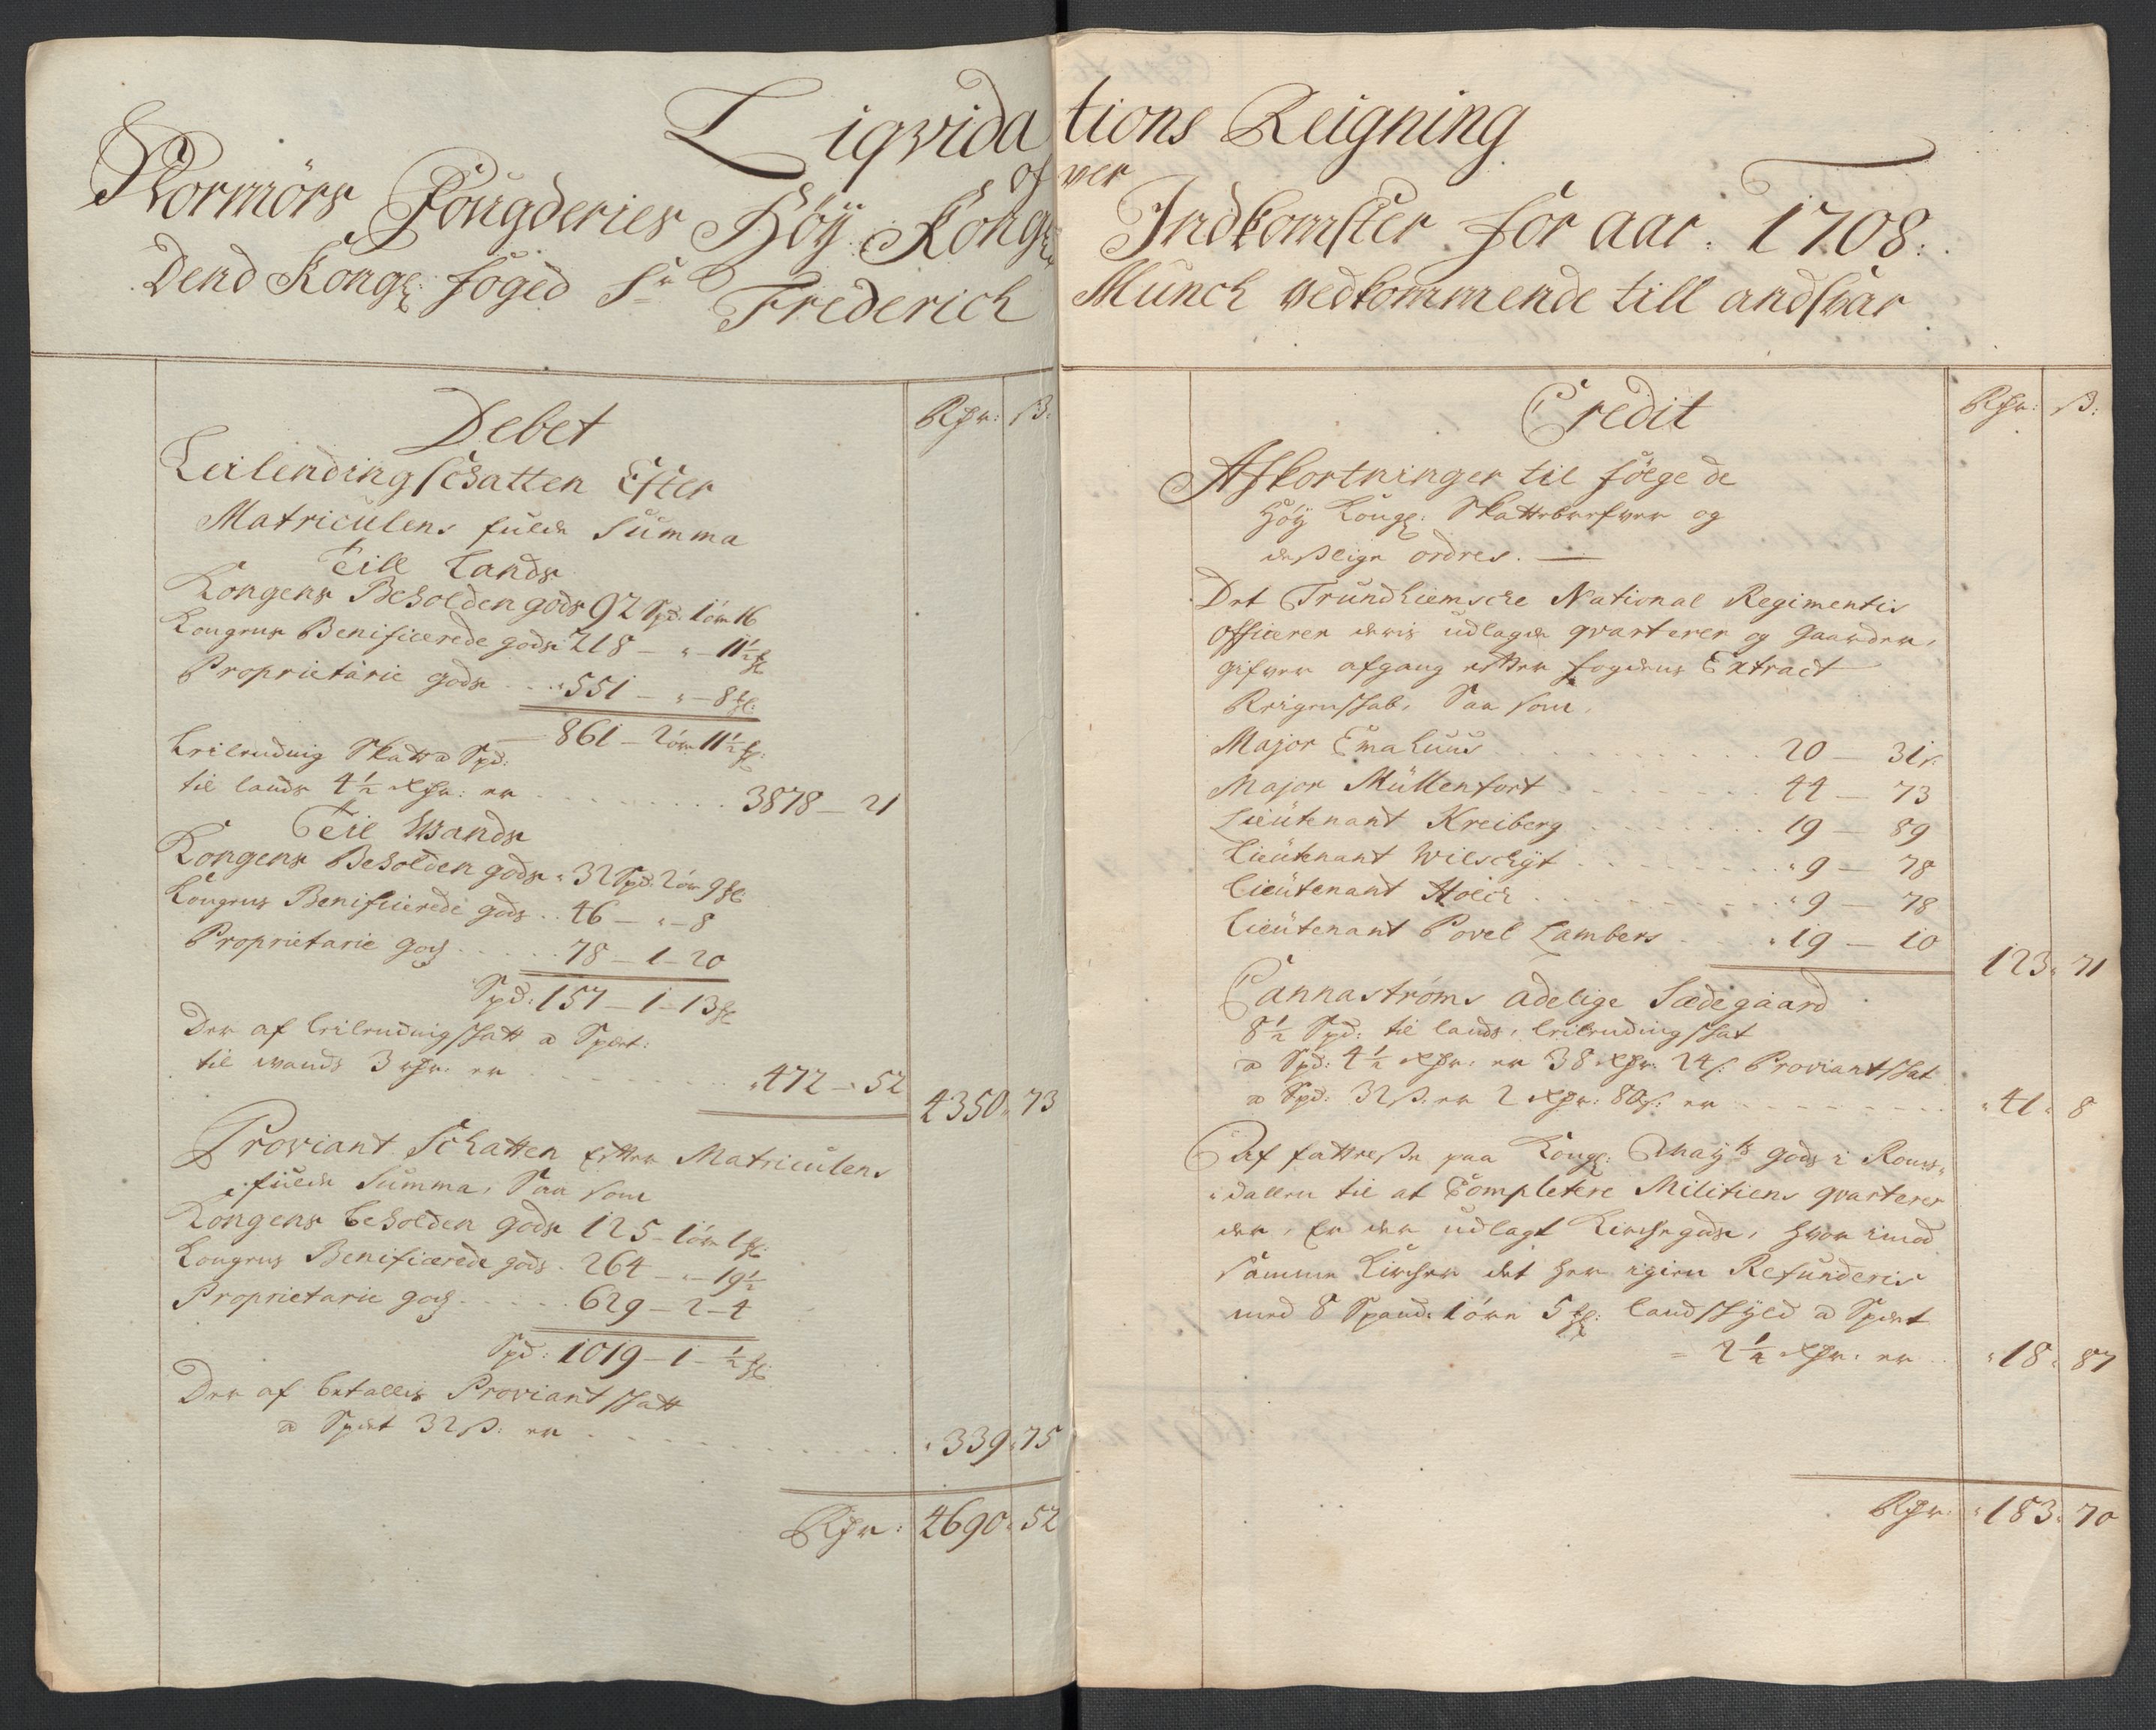 Liqvidations Reigning
ofver
Normörs Fougderies Höy Kongl: Indkomster for aar. 1708.
Dend Kongl: foged Sr Frederich Munch vedkommende till andsvar
Debet
Rdr: ß:
Leilending schatten Efter
Matriculens fulde Summa
Till Lands
Kongens Beholden gods 92 Spd: 1 ør 16
Kongens Beneficerede gods 218 - " - 11½ Ml
Proprietarie gods 551 - " - 8 Ml:
861 - 2 ør 11½ Ml:
Leilending Skatt a Spd:
til lands 4½ Rdr: er 3878 - 21
Till Wands
Kongens Beholden gods 32 Spd: 2 ør 9 Ml
Kongens Benificerede gods 46 - " - 8
Proprietarie gods 78 - 1 - 20
Spd: 157 - 1 - 13 Ml
Der af leilending skatt a Spdt:
til wands 3 rdr: er 472 - 52
4350 " 73
Proviant Schatten efter Matriculens
fulde Summa, Saa som
Kongens beholden gods 125 - 1 ør 1 Ml:
Kongens Benificerede gods 264 - " - 19½
Proprietarie gods 629 - 2 - 4
Spd: 1019 - 1 - ½ Ml:
Der af betallis Proviant skatt
a Spdt 32 ß: er 339 " 75
Rdr: 4690 " 52
Credit
Rdr: ß:
Afkortninger til følge de
Høy Kongl: Skattebrefver og
deslige ordres.
Det Trundhiemsche National Regimentis
Officerer deris udlagde qvarterer og gaarder,
gifver afgang efter fogdens Extract
Reigenskab, Saa som,
Major Emahuus 20 - 31 ß:
Major Müllenfort 44 - 73
Lieutenant Kreiberg 19 - 89
Lieutenant Wilschyt 9 - 78
Lieutenant Holch 9 - 78
Lieutenant Povel Lambers 19 - 10
123 " 71
Cannastrøms adelige Sædegaard
8½ Spd: til lands, leilending skat
a Spd: 4½ Rdr: er 38 Rdr: 24 ß: Proviant skat
a Spd: 32 ß: er 2 Rdr: 80 ß: er 41 " 8
Af fattelse paa Kongl: Mayts gods i Roms-
dallen til at Completere Militiens qvarterer
der, Er der udlagt Kirche gods, hvor imod
samme Kircher det her igien Refunderis
med 8 Spand: 1 øre 5 Ml: landskyld a Spdt
2¼ Rdr: er 18 " 87
Rdr: 183 " 70